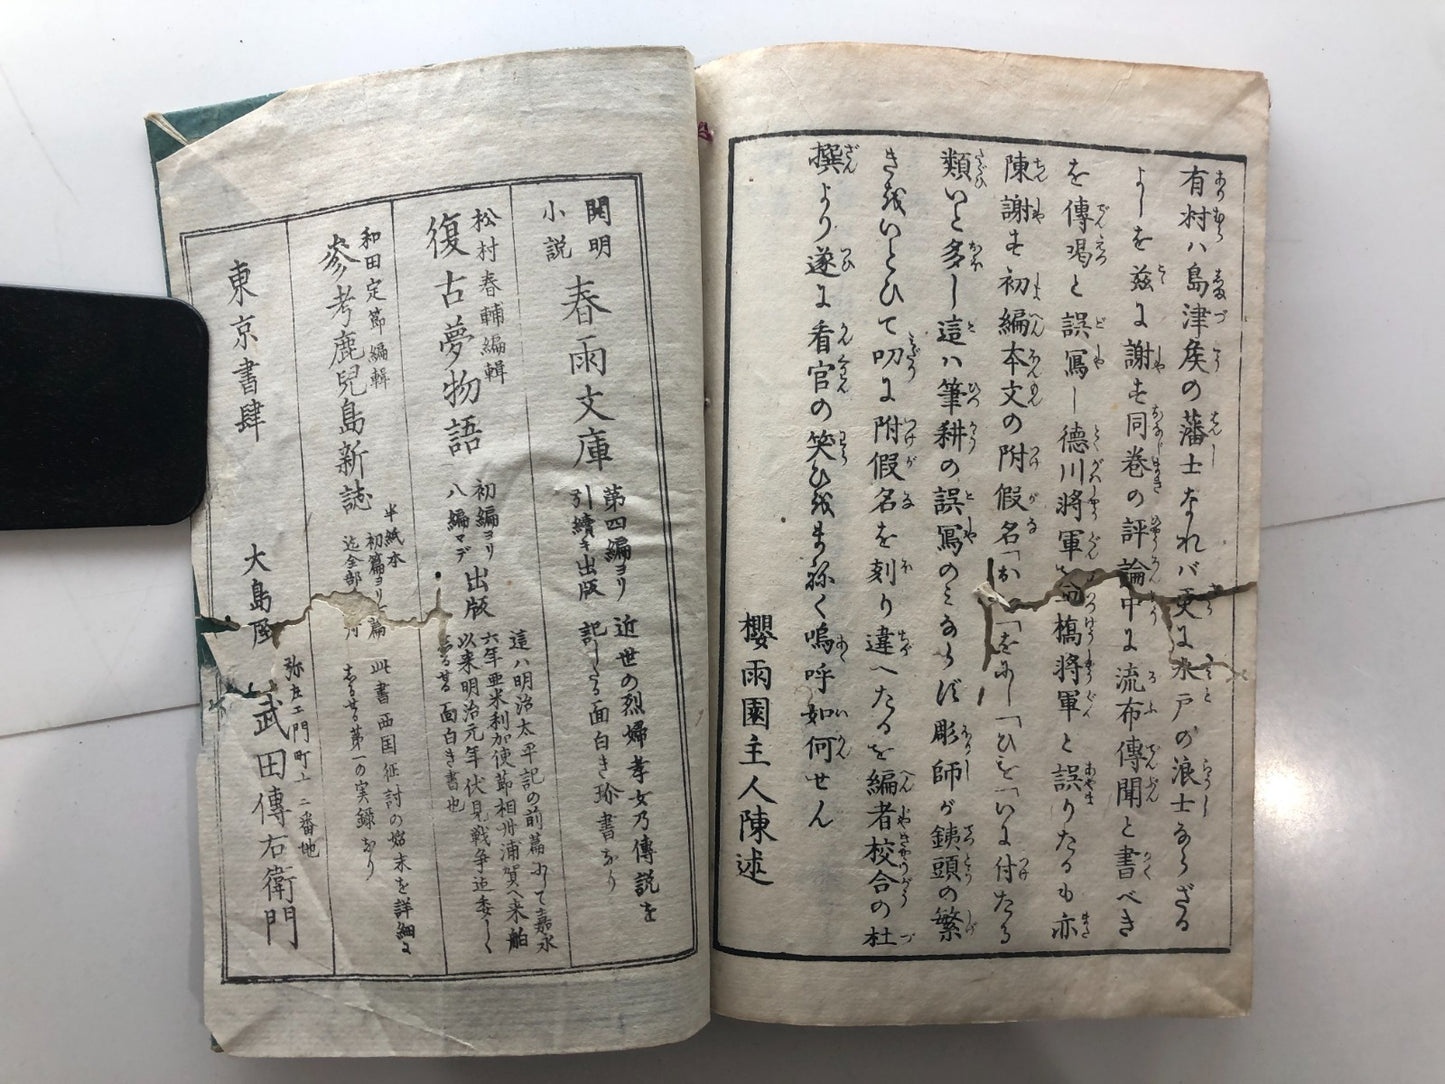 有村ハ島津矦の藩士なれバ更に水戸の浪士ならざる
よしを玆に謝す同巻の評論中に流布傳聞と書べき
を傳喝と誤寫し德川將軍を一橋將軍と誤りたるも亦
陳謝す初編本文の附假名「お「をに「ひを「いに付たる
類いと多し這ハ筆耕の誤寫のみならず彫師が銕頭の繁
きをいとひて叨に附假名を刻り違へたるを編者校合の杜
撰より遂に看官の笑ひをまねく嗚呼如何せん
櫻雨園主人陳述
開明
小説
春雨文庫
第四編ヨリ
引續キ出版
近世の烈婦孝女乃傳説を
記したる面白き珍書なり
松村春輔編輯
復古夢物語
初編ヨリ
八編マデ
出版
這ハ明治太平記の前篇にして嘉永
六年亜米利加使節相州浦賀へ来舶
以来明治元年伏見戦争迄委しく
しるせる面白き書也
和田定節編輯
參考鹿兒島新誌
半紙本
初篇ヨリ
迄全部
此書西国征討の始末を詳細に
しるせる第一の実録なり
東京書肆
大島屋
弥左エ門町上二番地
武田傳右衛門